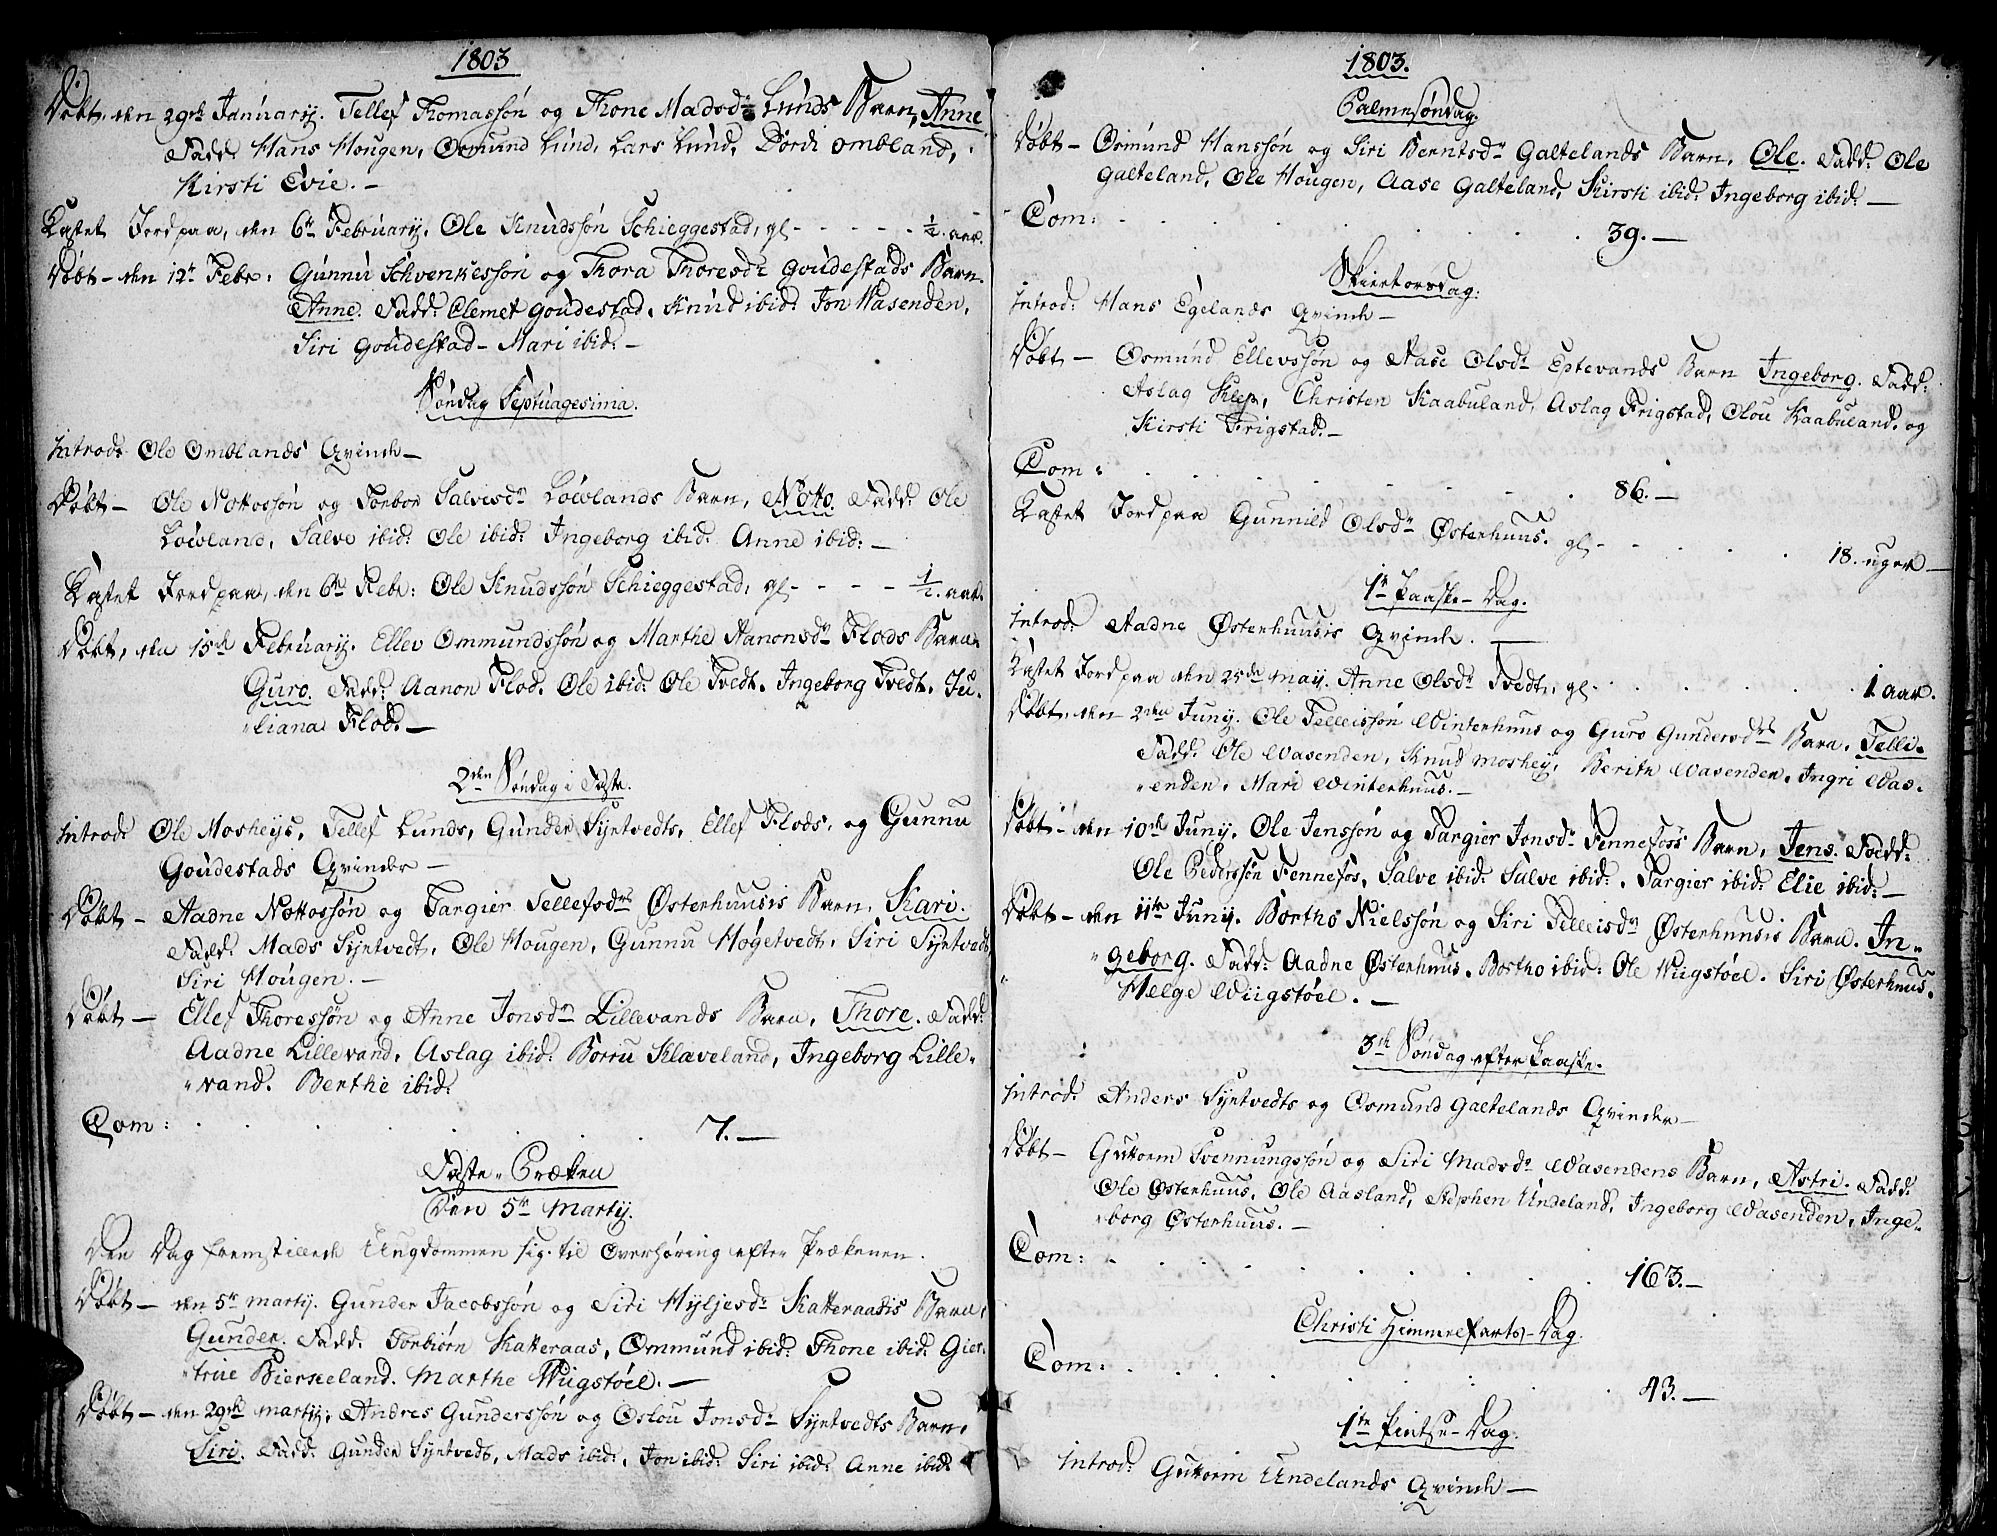 1803
Døbt, den 29de Januarij. Tellef Thomassøn og Thone Madsdr Lunds Barn, Anne
Fadd: Hans Hougen, Osmund Lund, Lars Lund, Dordi Ombland,
Kirsti Evie. –
Kastet Jord paa, den 6te Februarij. Ole Knudssøn Schieggestad, gl - - - - - ½. aar.
Døbt – den 12te Febr: Gunnu Schvenkessøn og Thora Thoresdr Goudestads Barn
Anne. Fadd: Clemet Goudestad, Knud ibid: Jon Wasenden,
Siri Goudestad – Mari ibid: –
Søndag Septuagesima.
Introd: Ole Omblands Qvinde –
Døbt – Ole Nottossøn og Torbor Salvesdr Løvlands Barn, Notto. Fadd: Ole
Løvland, Salve ibid: Ole ibid: Ingeborg ibid: Anne ibid: –
Kastet Jord paa, den 6te Febr: Ole Knudssøn Schieggestad, gl - - - - ½. aar.
Døbt, den 15de Februarij. Ellev Ommundssøn og Marthe Aanonsdr Flods Barn
Guro. Fadd: Aanon Flod. Ole ibid: Ole Tvedt. Ingeborg Tvedt. Ju-
"liana Flod. –
2den Søndag i Faste.
Introd: Ole Mosheys, Tellef Lunds, Gunder Syntvedts, Ellef Flods, og Gunnu
Goudestads Qvinder –
Døbt – Aadne Nottossøn og Targier Tellefsdrs Østerhuusis Barn, Kari.
Fadd: Mads Syntvedt, Ole Hougen, Gunnu Høgetvedt, Siri Syntvedt
Siri Hougen. –
Døbt – Ellef Thoressøn og Anne Jonsdr Lillevands Barn, Thore. Fadd:
Aadne Lillevand, Aslag ibid: Borru Klaveland, Ingeborg Lille-
"vand. Berthe ibid:
Com: . . . . . . . 7. –
Faste-Præken
Den 5te Martij.
Den Dag fremstillede Ungdommen sig til Overhøring efter Prækenen.
Døbt – den 5te Martij. Gunder Jacobssøn og Siri Hyljesdr Katteraasis Barn,
Gunder. Fadd: Torbiørn Katteraas, Ommund ibid: Thone ibid: Gier-
"true Bierkeland. Marthe Wiigstøel. –
Døbt – den 29de Martij, Andres Gunderssøn og Oslou Jonsdr Syntvedts Barn,
Siri. Fadd: Gunder Syntvedt, Mads ibid:, Jon ibid: Siri ibid: Anne ibid:
1803.
Palmesøndag.
Døbt – Osmund Hanssøn og Siri Berntsdr Galtelands Barn, Ole. Fadd: Ole
Galteland, Ole Hougen, Aase Galteland, Kirsti ibid: Ingeborg ibid: –
Com: . . . . . . . 39. –
Skiertorsdag:
Introd: Hans Egelands Qvinde –
Døbt – Osmund Ellevssøn og Aase Olsdr Eptevands Barn Ingeborg. Fadd:
Aslag Klep, Christen Kaabuland, Aslag Frigstad, Olou Kaabuland, og
Kirsti Frigstad. –
Com: . . . . . . . 86. –
Kastet Jord paa Gunnild Olsdr Østerhuus. gl - - - - - 18. uger –
1te Paaske-Dag.
Introd: Aadne Østerhuusis Qvinde. –
Kastet Jord paa den 25de May. Anne Olsdr Tvedt, gl - . . . . . . 1 aar.
Døbt, den 2den Junij. Ole Telleissøn Winterhuus og Guro Gundersdrs Barn. Telli.
Fadd: Ole Wasenden, Knud Moshey, Berite Wasenden, Ingri Was-
"enden. Mari Winterhuus. –
Døbt – den 10de Junij, Ole Jenssøn og Targier Jonsdr Fennefoss Barn, Jens. Fadd:
Ole Pederssøn Fennefos, Salve ibid: Salve ibid:, Targier ibid: Elie ibid: –
Døbt – den 11te Junij. Bortho Nielssøn og Siri Telleisdr Østerhuusis Barn. In-
"geborg. Fadd: Aadne Østerhuus. Bortho ibid: Ole Wiigstøel. Siri Østerhuus.
Helge Wiigstøel. –
3de Søndag efter Paaske.
Introd: Anders Syntvedts og Osmund Galtelands Qvinder –
Døbt – Guttorm Svennungssøn og Siri Madsdr Wasendens Barn, Astri. Fadd:
Ole Østerhuus, Ole Aasland, Stephen Undeland, Ingeborg Wasenden, Inge-
"borg Østerhuus. –
Com: . . . . . . . 163. –
Christi Himmelfarts-Dag.
Com: . . . . . . . 43. –
1te Pintse-Dag.
Introd: Guttorm Undelands Qvinde –